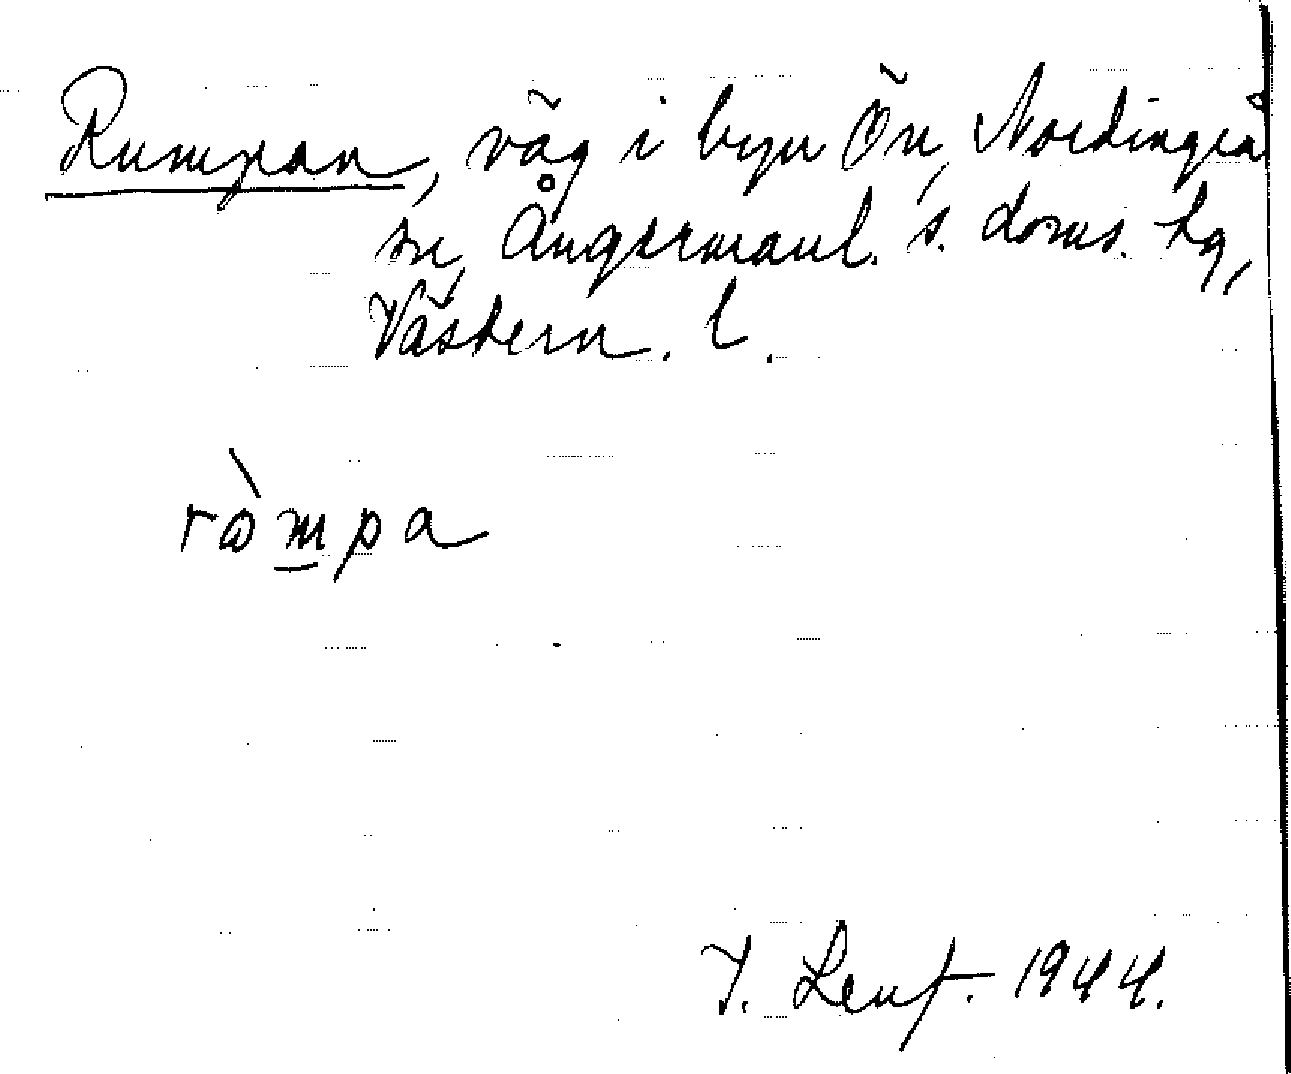 Rumpan, väg i byn Ön, Nordingrå
sn, Ångermanl. s. doms. tg,
Västern. l.
ròmpa
1944.